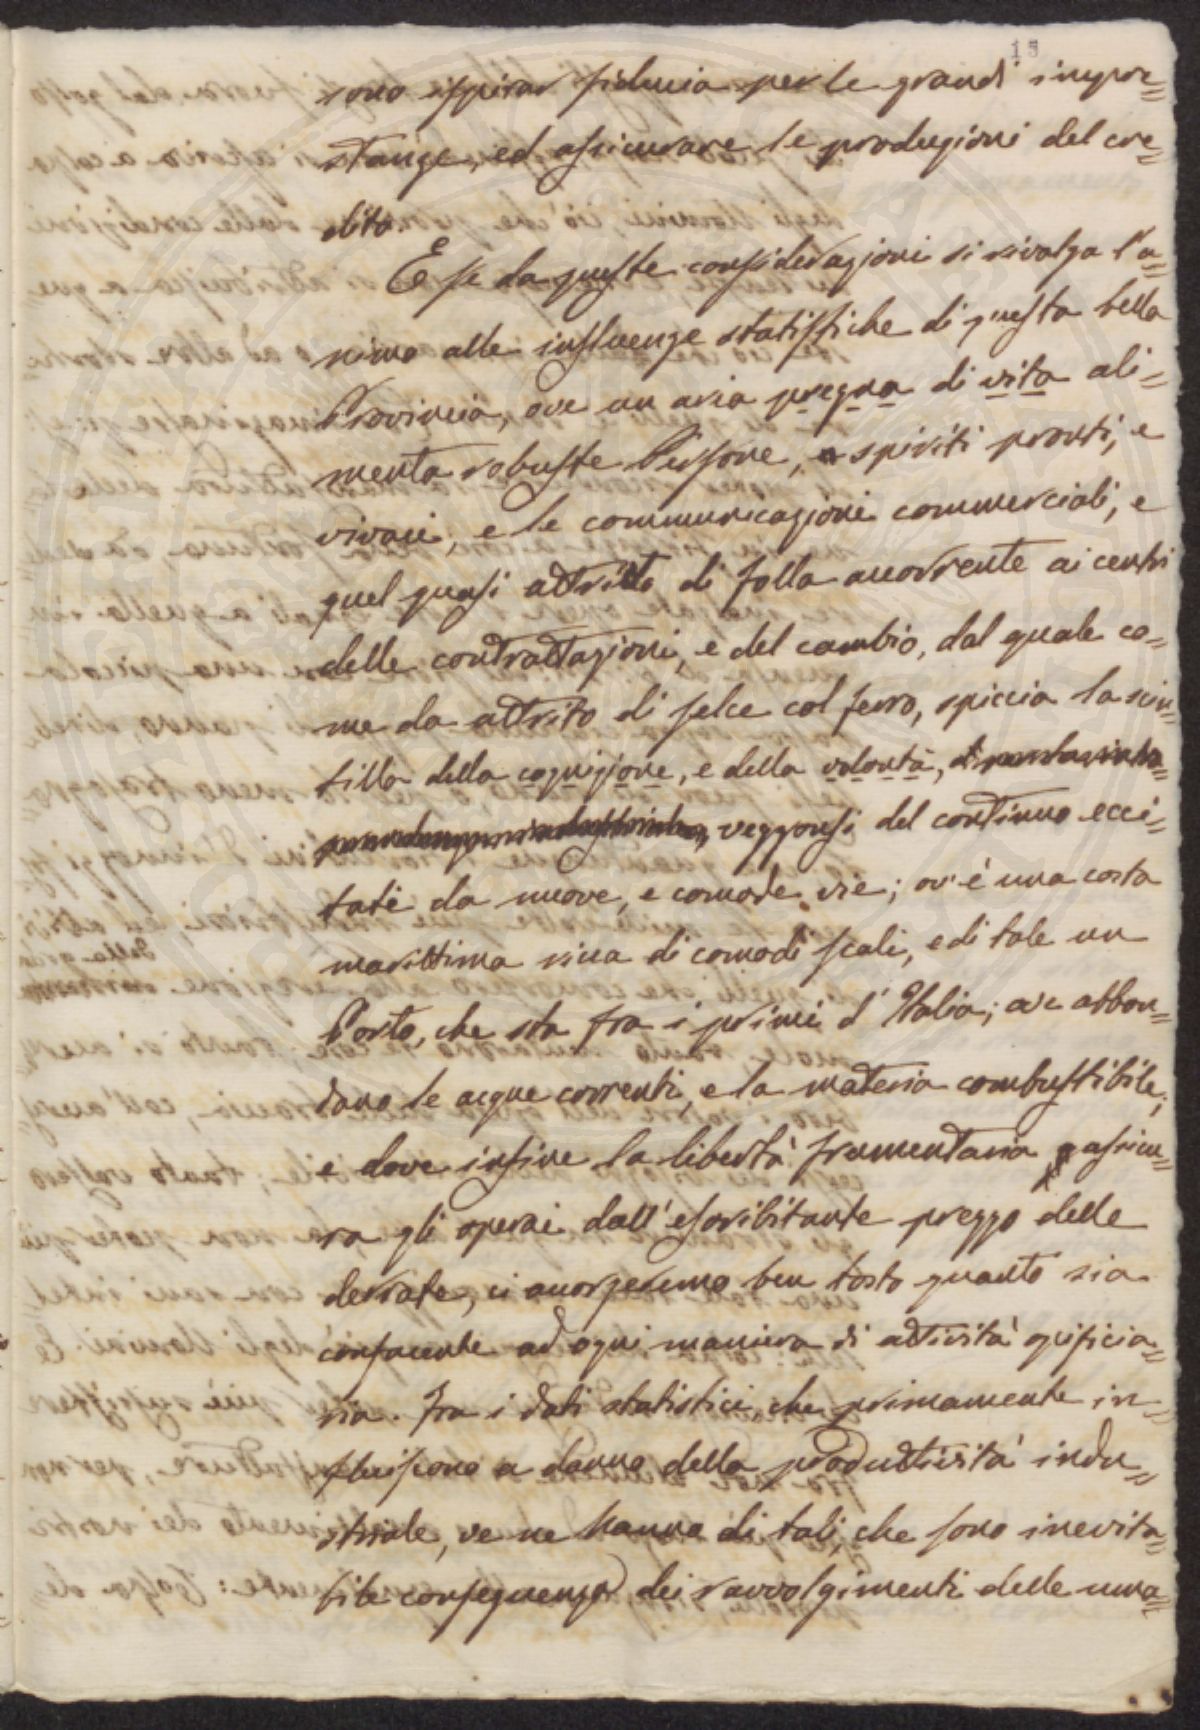 15
sono ispirar fiducia per le grandi impre=
stanze, ed assicurare le produzioni del cre=
dito.
E se da queste considerazioni si rivolga l'a=
nimo alle influenze statistiche di questa bella
Provincia, ove un aria pregna di vita ali=
menta robuste Persone, e spiriti pronti, e
vivaci, e le communicazioni commerciali, e
quel quasi attrito di folla accorrente ai centri
delle contrattazioni, e del cambio, dal quale co=
me da attrito di selce col ferro, spiccia la scin=
tilla della cognizione, e della volontà,
veggonsi del continuo ecci=
tate da nuove, e comode vie; ov'è una costa
marittima ricca di comodi scali, e di tale un
Porto, che sta fra i primi d'Italia; ove abbon=
dano le acque correnti, e la materia combustibile;
e dove infine la libertà frumentaria assicu=
ra gli operai dall'esorbitante prezzo delle
derrate, ci accorgeremo ben tosto quanto sia
confacente ad ogni maniera di attività opificia=
ria. Fra i dati statistici, che primamente in=
fluiscono a danno della produttività indu=
striale, ve ne hanno di tali, che sono inevita=
bile conseguenza dei ravvolgimenti delle uma=